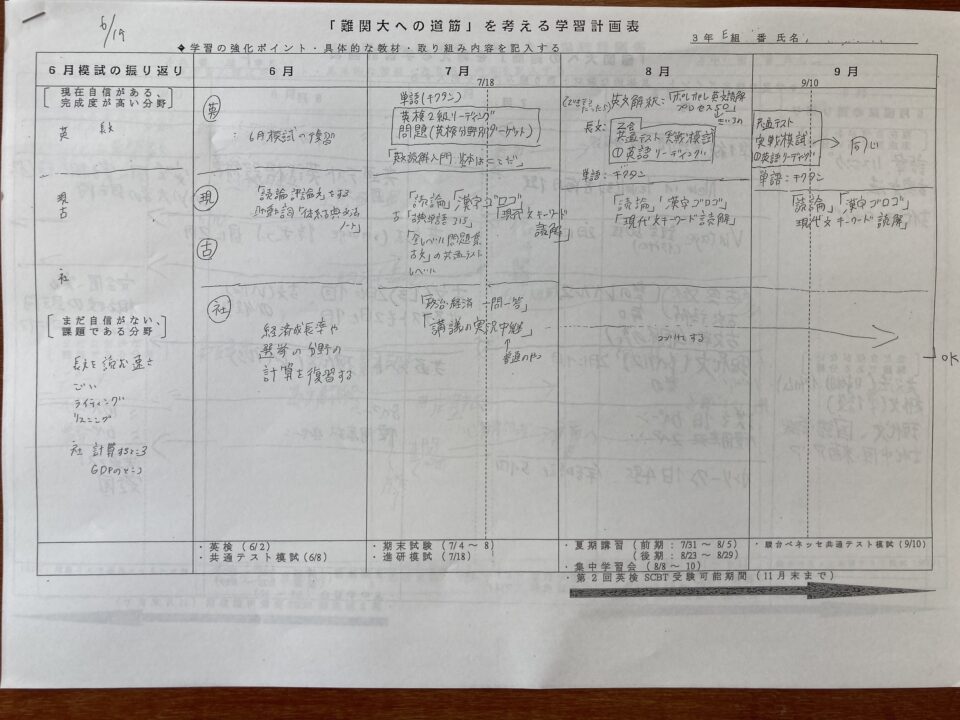 6/19
「難関大への道筋」を考える学習計画表
◆学習の強化ポイント・具体的な教材・取り組み内容を記入する
3年 E組 番 氏名
6月模試の振り返り
6月
7月
8月
9月
7/18
9/10
現在自信がある、
完成度が高い分野
英 長文
現
古
社
まだ自信がない、
課題である分野
長文を読む速さ
ごい
ライティング
リスニング
社 計算するところ
GDPのところ
英
6月模試の復習
現
古
社
経済成長率や
選挙の分野の
計算を復習する
・英検(6/2)
・共通テスト模試(6/8)
単語(キクタン)
英検2級リーディング
問題(英検分野別ターゲット)
「英文読解入門 基本はここだ」
「読論」「漢字ゴロゴ」
古「古典単語315」
「現代文キーワード
読解」
「全レベル問題集
古文」の共通テスト
レベル
「政治・経済 一問一答」
「講義の実況中継」
↑
普通のやつ
・期末試験(7/4~8)
・進研模試(7/18)
英文解釈:「ポレポレ英文読解
プロセス50」
長文:
Z会
共通テスト実戦模試
①英語リーディング
単語:キクタン
「読論」「漢字ゴロゴ」
「現代文キーワード読解」
・夏期講習(前期:7/31~8/5)
(後期:8/23~8/29)
・集中学習会(8/8~10)
・第2回英検SCBT受験可能期間(11月末まで)
共通テスト
実戦模試
①英語リーディング
→ 同じ
単語:キクタン
「読論」「漢字ゴロゴ」
現代文キーワード読解」
OK
・駿台ベネッセ共通テスト模試(9/10)